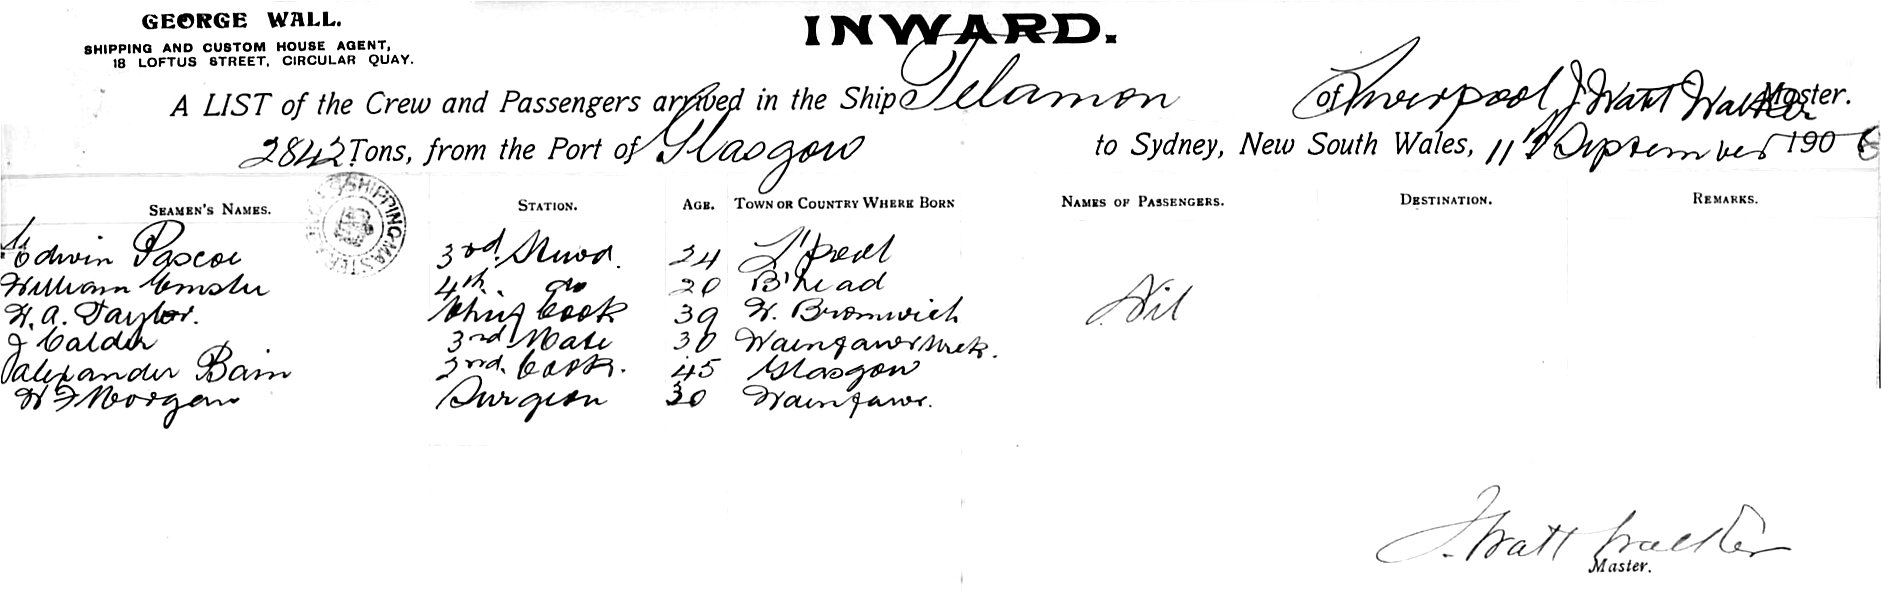 GEORGE WALL.
SHIPPING AND CUSTOM HOUSE AGENT,
18 LOFTUS STREET, CIRCULAR QUAY.
INWARD.
A LIST of the Crew and Passengers arrived in the Ship Telamon of Liverpool J Watt Walker Master.
2842 Tons, from the Port of Glasgow to Sydney, New South Wales, 11th September 1906
SEAMEN'S NAMES. STATION. AGE. TOWN OR COUNTRY WHERE BORN NAMES OF PASSENGERS. DESTINATION. REMARKS.
SHIPPING MASTER
Edwin Pascoe 3rd. Stwd. 24 L'pool
William 4th. do 20 B'head
W. A. Taylor. Chief Cook 39 W. Bromwich Nil
J Calder 3rd Mate 30
Alexander Bain 2nd. Cook. 45 Glasgow
W F Morgan Surgeon 30
J. Watt Walker
Master.